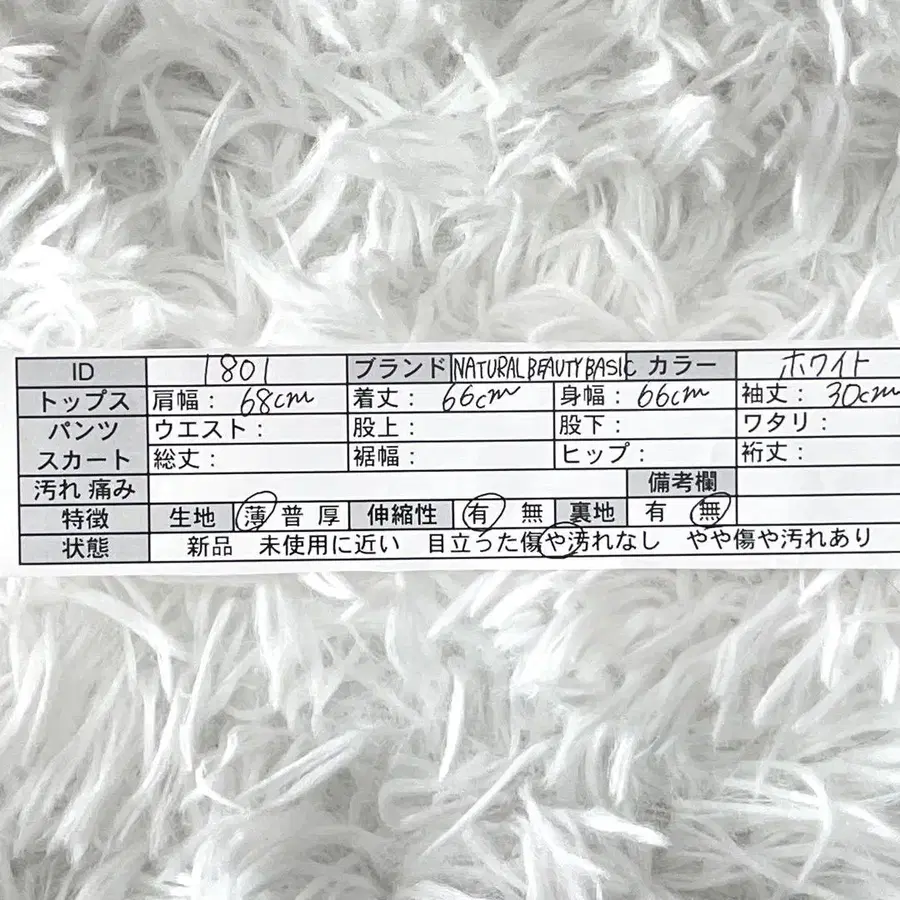 ID 1801 ブランド NATURAL BEAUTY BASIC カラー ホワイト
トップス 肩幅： 68cm 着丈： 66cm 身幅： 66cm 袖丈： 30cm
パンツ ウエスト： 股上： 股下： ワタリ：
スカート 総丈： 裾幅： ヒップ： 裄丈：
汚れ 痛み 備考欄
特徴 生地 薄 普 厚 伸縮性 有 無 裏地 有 無
状態 新品 未使用に近い 目立った傷や汚れなし やや傷や汚れあり